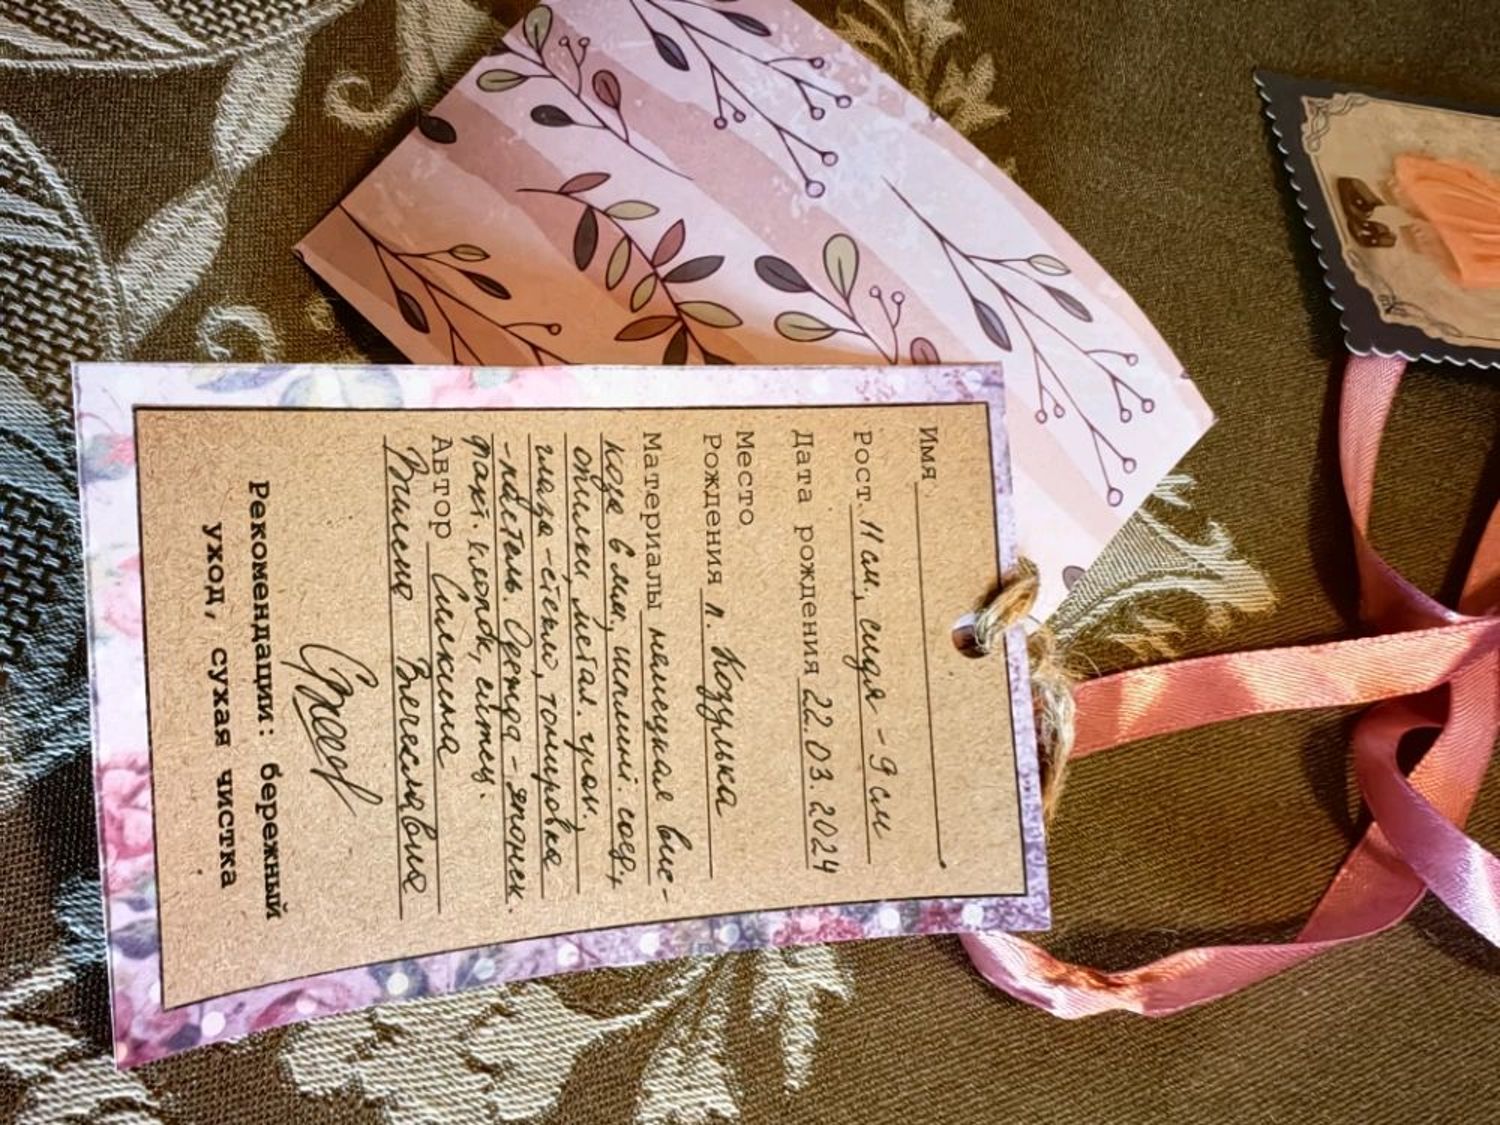 Имя
Рост 11 см., сидя - 9 см
Дата рождения 22.03.2024
Место
Рождения п. Козулька
Материалы немецкая вис-
коза 6 мм, шплинт. соед.,
опилки, метал. гран.,
глаза - стекло, тонировка
- пастель. Одежда - японск.
факт. хлопок, ситец.
Автор Силкина
Вилена Вячеславна
Рекомендации: бережный
уход, сухая чистка